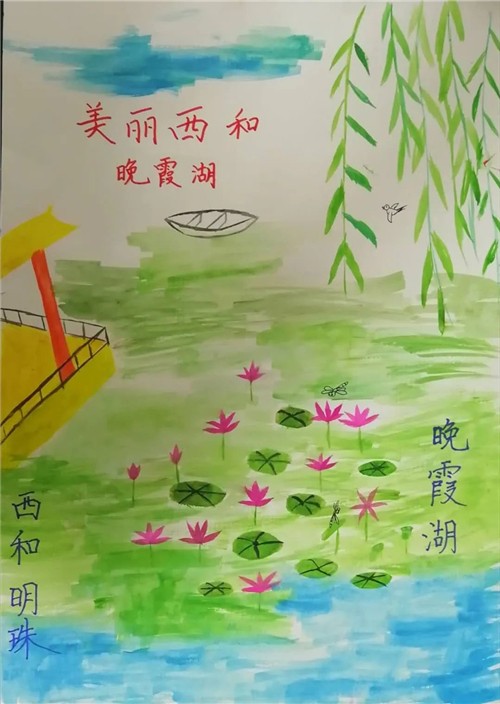 美丽西和
晚霞湖
晚霞湖
西和明珠